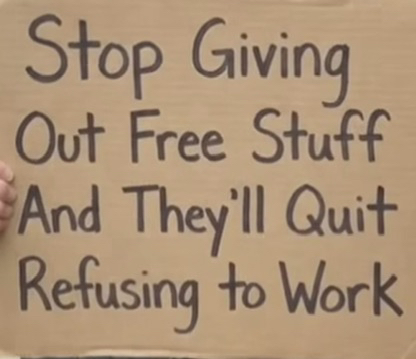 Stop Giving
Out Free Stuff
And They'll Quit
Refusing to Work